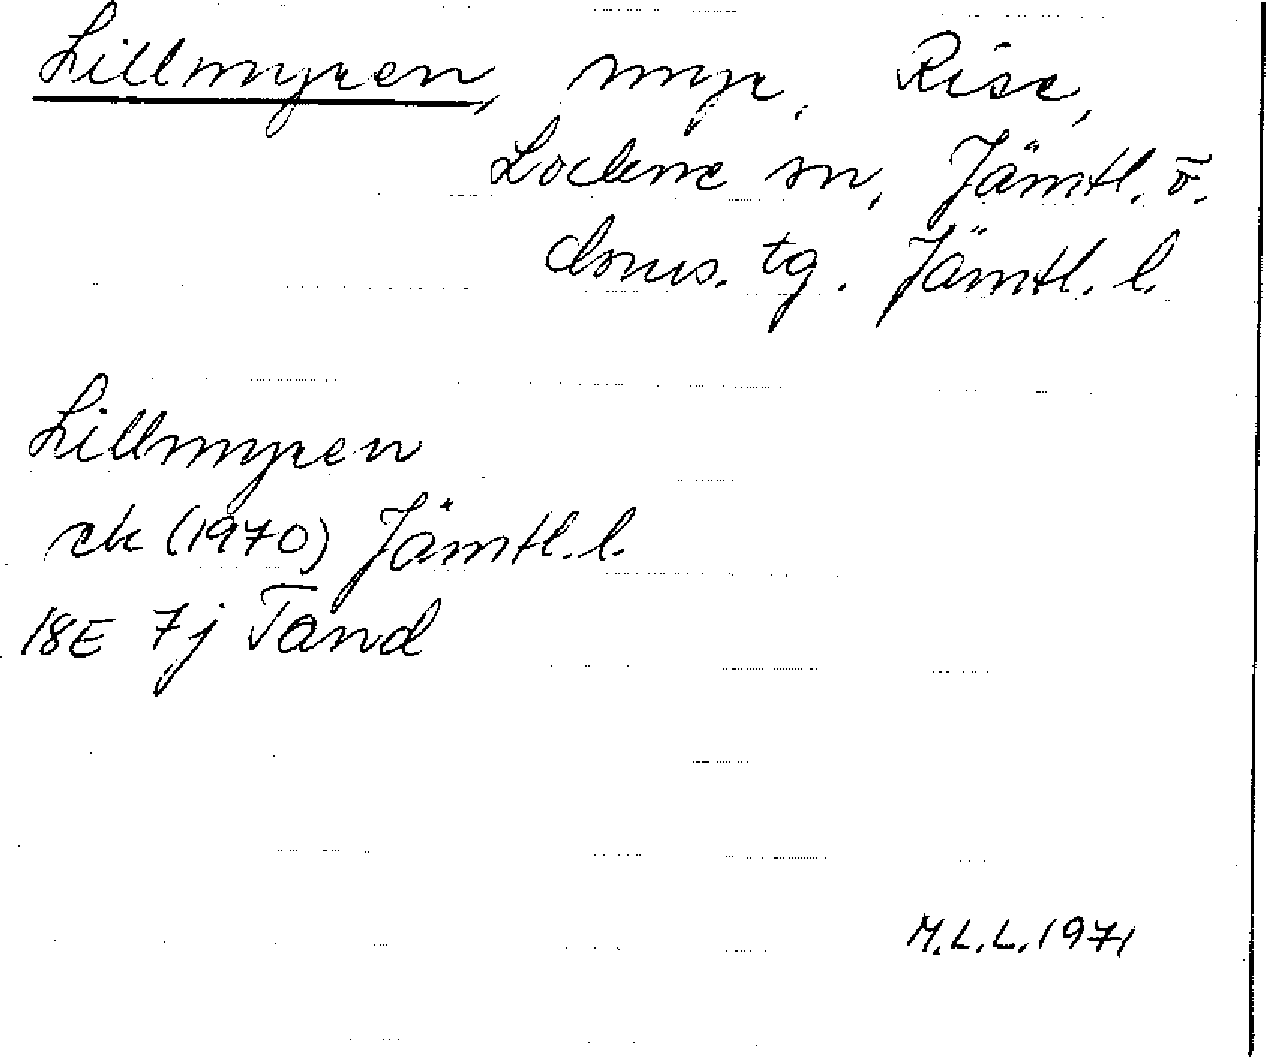 Lillmyren, myr, Rise,
Lockne sn, Jämtl. ö.
doms. tg. Jämtl. l.
Lillmyren
ek (1970) Jämtl. l.
18E 7j Tand
M.L.L. 1971